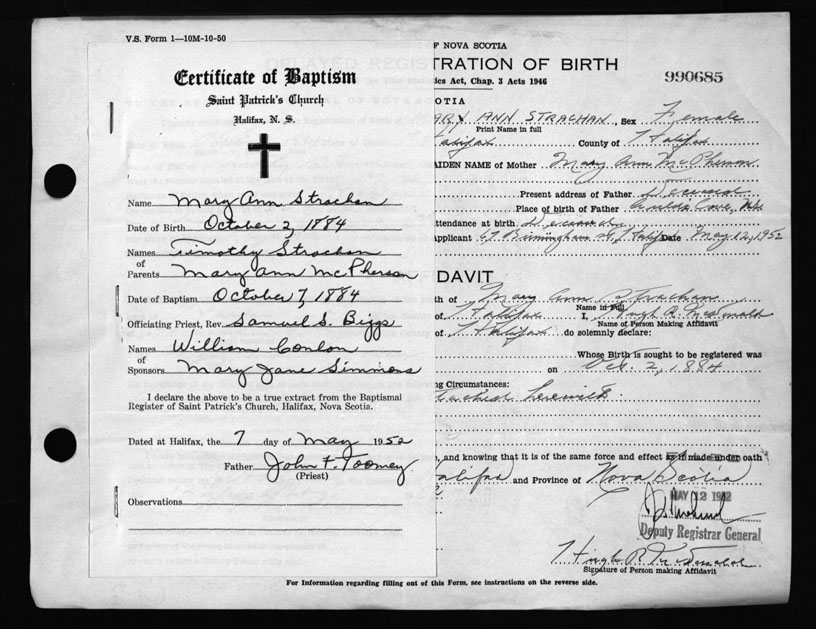 V.S. Form 1—10M-10-50
Certificate of Baptism
Saint Patrick's Church
Halifax, N. S.
Name Mary Ann Strachan
Date of Birth October 2, 1884
Names Timothy Strachan
of
Parents Mary Ann McPherson
Date of Baptism October 7, 1884
Officiating Priest, Rev. Samuel S. Biggs
Names William Conlon
of
Sponsors Mary Jane Simmons
I declare the above to be a true extract from the Baptismal
Register of Saint Patrick's Church, Halifax, Nova Scotia.
Dated at Halifax, the 7 day of May 1952
Father John F. Toomey
(Priest)
Observations
F NOVA SCOTIA
TRATION OF BIRTH
ics Act, Chap. 3 Acts 1946
990685
COTIA
ARY ANN STRACHAN, Sex Female
Print Name in full
alifax County of Halifax
AIDEN NAME of Mother Mary Ann McPherson
Present address of Father Deceased
Place of birth of Father Auld's Cove, N.S.
ttendance at birth
pplicant 67 Birmingham St., Halifax Date May 12, 1952
DAVIT
th of Mary Ann Strachan
Name in Full
of Halifax I, Hugh R. McDonald
Name of Person Making Affidavit
of Halifax do solemnly declare:
Whose Birth is sought to be registered was
on Oct. 2, 1884
ng Circumstances:
g, and knowing that it is of the same force and effect as if made under oath
alifax and Province of Nova Scotia
MAY 12 1952
Deputy Registrar General
Hugh R. McDonald
Signature of Person making Affidavit
For Information regarding filling out of this Form, see instructions on the reverse side.